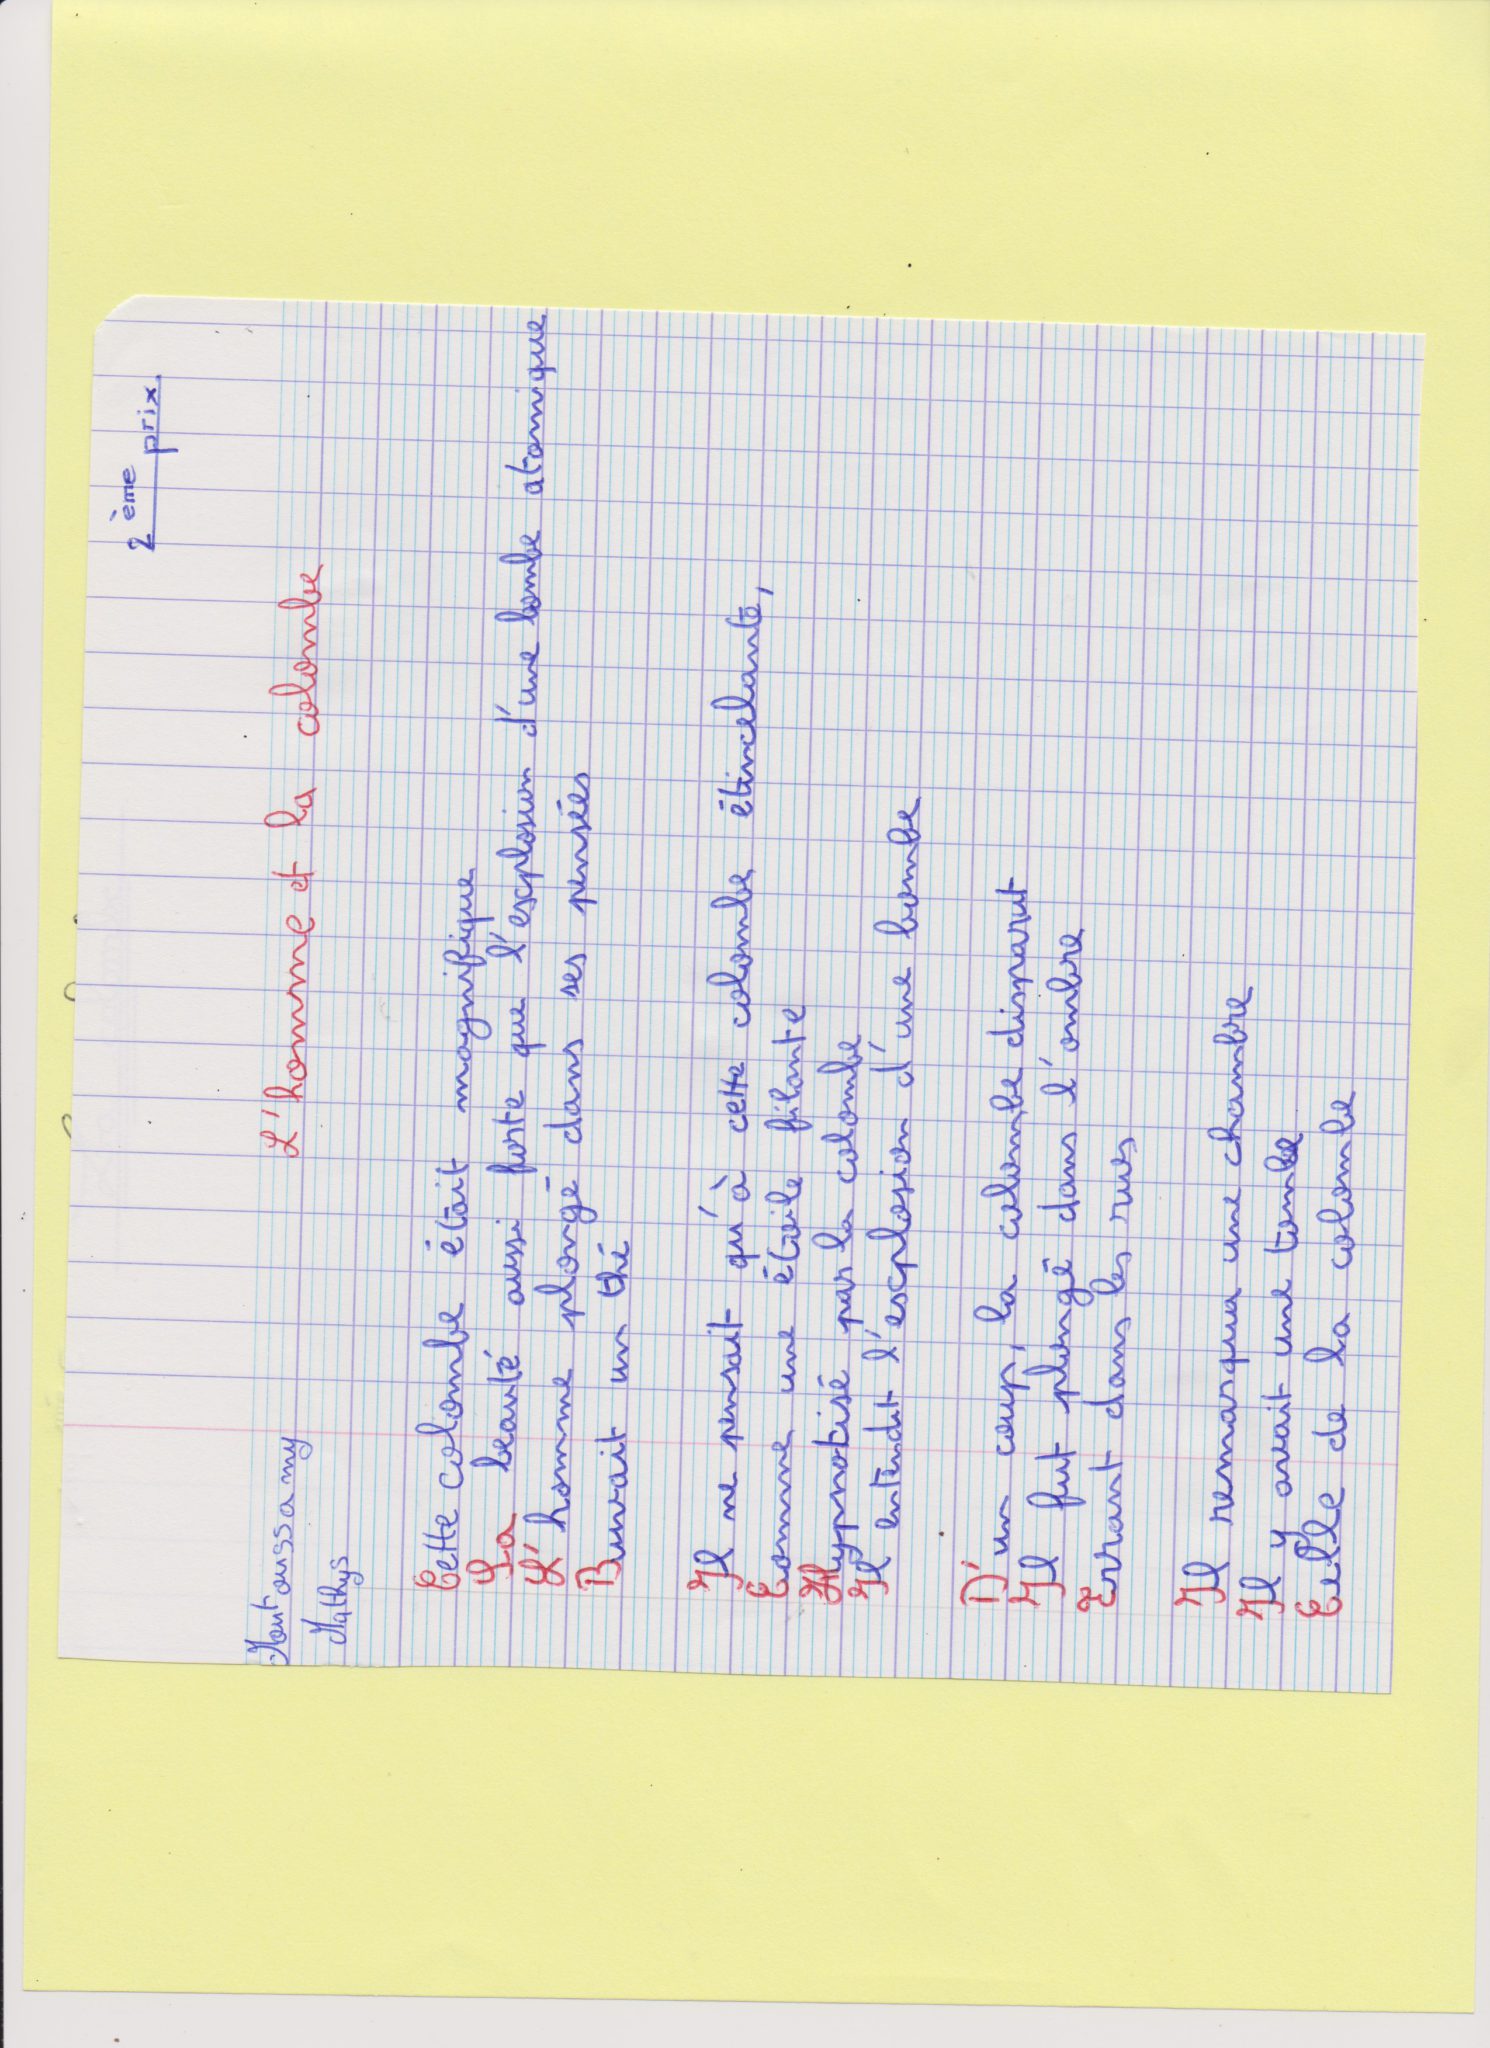 2ème prix.
Mathys
L'homme et la colombe
Cette colombe était magnifique
La beauté aussi forte que l'explosion d'une bombe atomique
L'homme plongé dans ses pensées
Buvait un thé
Il ne pensait qu'à cette colombe étincelante,
Comme une étoile filante
Hypnotisé par la colombe
Il entendit l'explosion d'une bombe
D'un coup, la colombe disparut
Il fut plongé dans l'ombre
Errant dans les rues
Il remarqua une chambre
Il y avait une tombe
Celle de la colombe